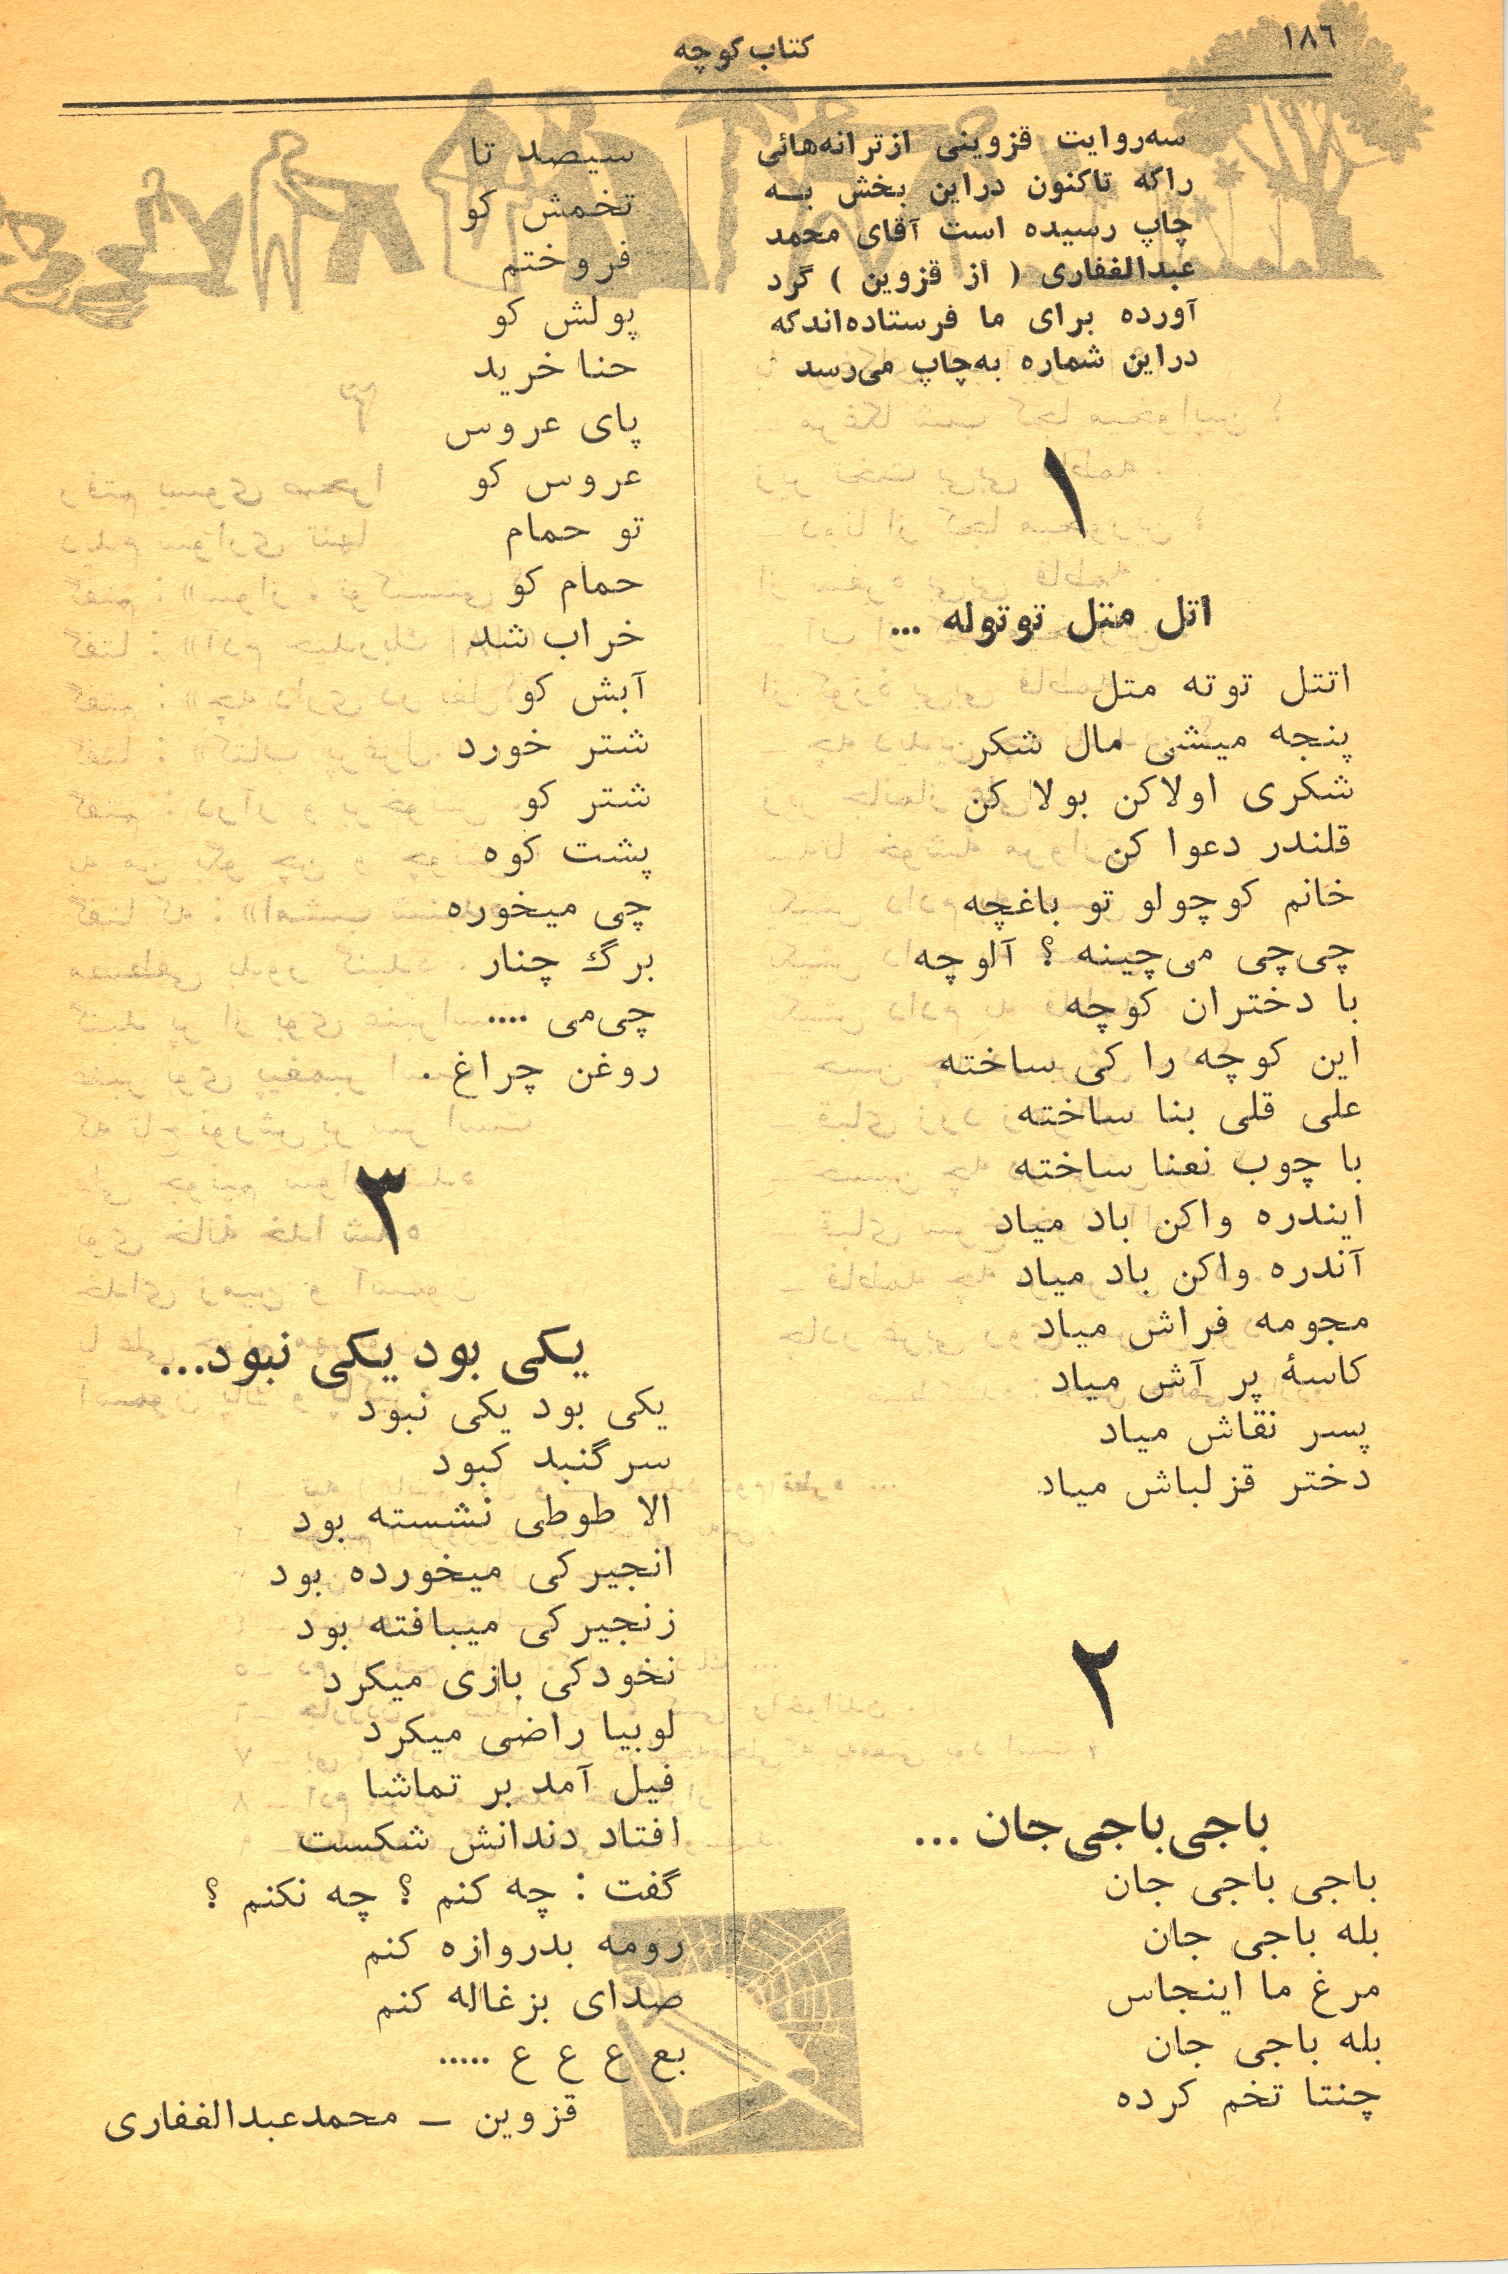 ۱۸۶
کتاب کوچه
سه‌روایت قزوینی ازترانه‌هائی
راکه تاکنون دراین بخش بـه
چاپ رسیده است آقای محمد
عبدالغفاری ( از قزوین ) گرد
آورده برای ما فرستاده‌اندکه
دراین شماره به‌چاپ می‌رسد
۱
اتل متل توتوله ...
اتتل توته متل
پنجه میشی مال شکر
شکری اولاکن بولا کن
قلندر دعوا کن
خانم کوچولو تو باغچه
چی‌چی می‌چینه ؟ آلوچه
با دختران کوچه
این کوچه را کی ساخته
علی قلی بنا ساخته
با چوب نعنا ساخته
ایندره واکن باد میاد
آندره واکن باد میاد
مجومه فراش میاد
کاسهٔ پر آش میاد
پسر نقاش میاد
دختر قزلباش میاد
۲
باجی‌باجی‌جان ...
باجی باجی جان
بله باجی جان
مرغ ما اینجاس
بله باجی جان
چنتا تخم کرده
سیصد تا
تخمش کو
فروختم
پولش کو
حنا خرید
پای عروس
عروس کو
تو حمام
حمام کو
خراب شد
آبش کو
شتر خورد
شتر کو
پشت کوه
چی میخوره
برگ چنار
چی‌می ....
روغن چراغ .
۳
یکی بود یکی نبود...
یکی بود یکی نبود
سرگنبد کبود
الا طوطی نشسته بود
انجیرکی میخورده بود
زنجیرکی میبافته بود
نخودکی بازی میکرد
لوبیا راضی میکرد
فیل آمد بر تماشا
افتاد دندانش شکست
گفت : چه کنم ؟ چه نکنم ؟
رومه بدروازه کنم
صدای بزغاله کنم
بع ع ع ع .....
قزوین ــ محمدعبدالغفاری